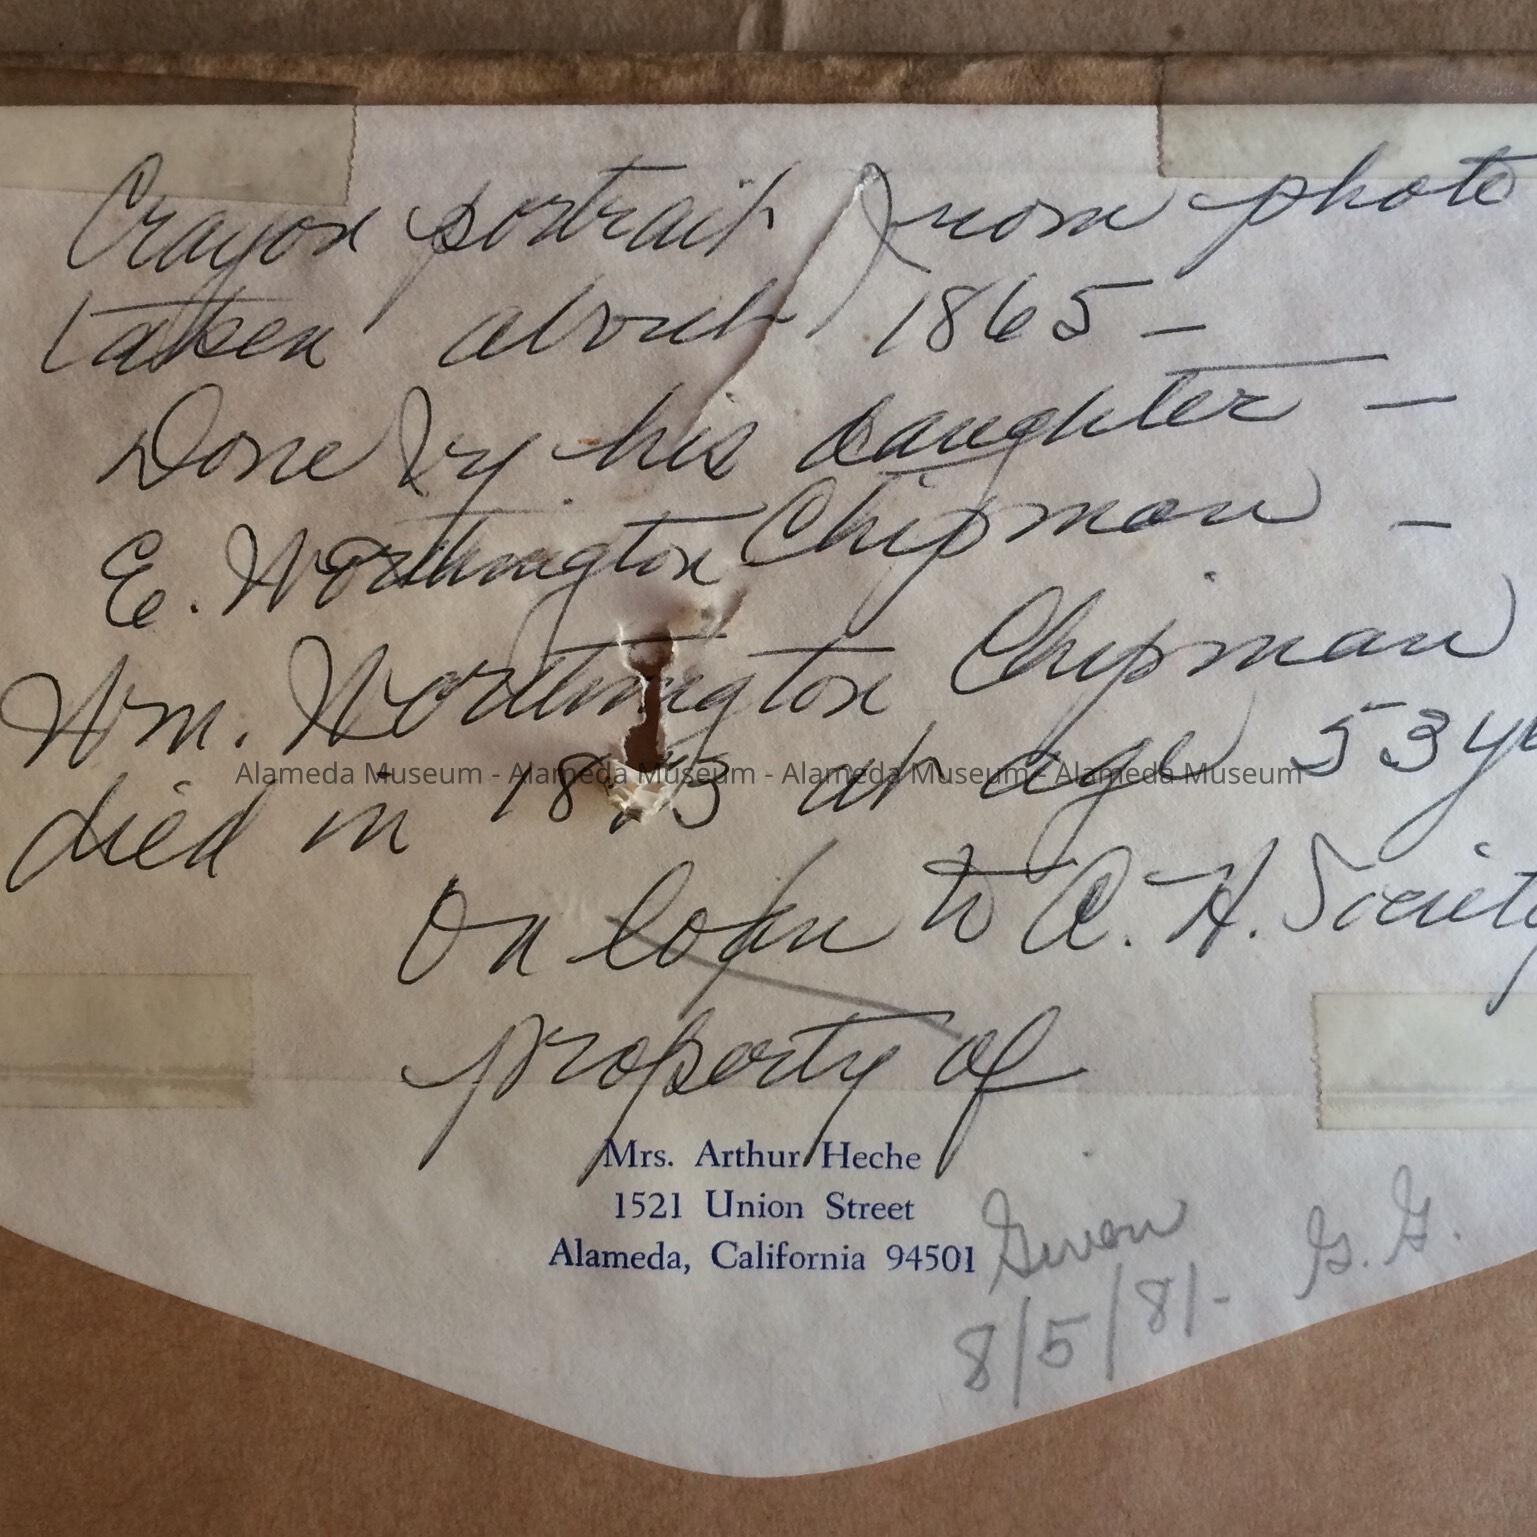 Crayon portrait from photo
taken about 1865 -
Done by his daughter -
E. Worthington Chipman -
Wm. Worthington Chipman
died in 1873 at age 53 y
Alameda Museum - Alameda Museum - Alameda Museum - Alameda Museum
On loan to A. H. Society
property of
Mrs. Arthur Heche
1521 Union Street
Alameda, California 94501
Given G. G.
8/5/81-